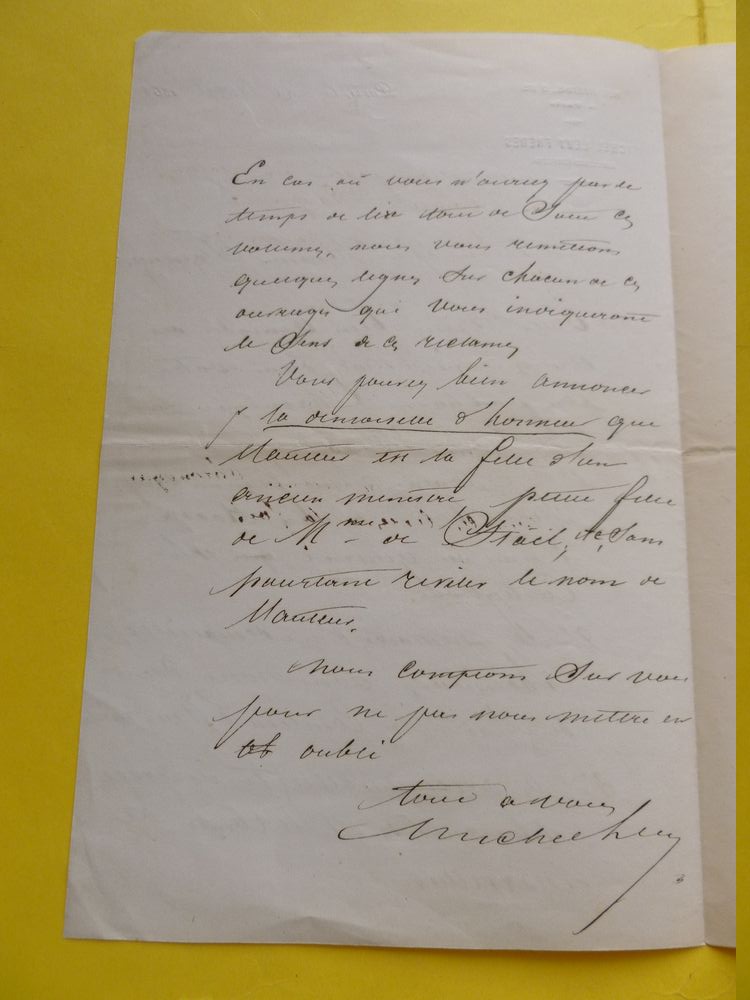 En cas où vous n'auriez pas le
temps de lire tout de suite ces
volumes, nous vous remettrons
quelques lignes sur chacun de ces
ouvrages qui vous indiqueront
le sens de ces reclames
Vous pouvez bien annoncer
la demoiselle d'honneur que
l'auteur est la fille d'un
ancien ministre, petite fille
de Mme de Stael, etc, sans
pourtant reveler le nom de
l'auteur.
Nous comptons sur vous
pour ne pas nous mettre en
oubli
tout a vous
Michel Levy